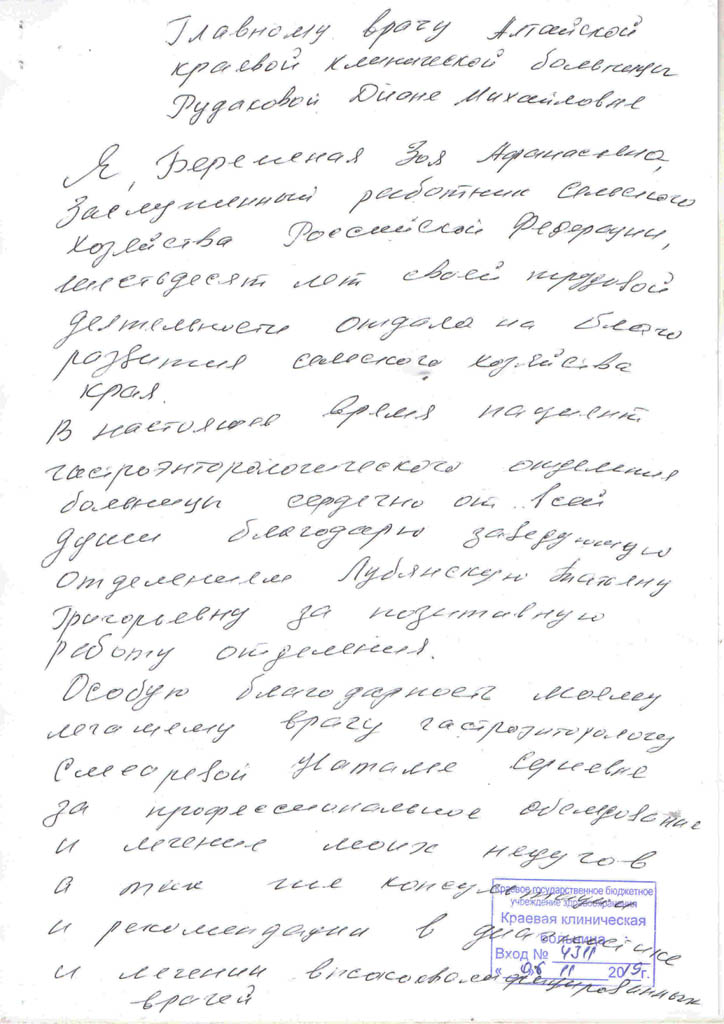 Главному врачу Алтайской
краевой клинической больницы
Рудаковой Диане Михайловне
Я, Беременая Зоя Афанасьевна,
Заслуженный работник сельского
хозяйства Российской Федерации,
шестьдесят лет своей трудовой
деятельности отдала на благо
развития сельского хозяйства
края.
В настоящее время пациент
гастроэнторологического отделения
больницы сердечно от всей
души благодарю заведующую
отделением Лубянскую Татьяну
Григорьевну за позитивную
работу отделения.
Особую благодарность моему
лечащему врачу гастроэнторологу
Наталье Сергеевне
за профессиональное обследование
и лечение моих недугов
а так же консультации
и рекомендации в диагностике
и лечении высококвалифицированных
врачей
Краевое государственное бюджетное
учреждение здравоохранения
Краевая клиническая
больница
Вход № 4311
« 06 11 2019г.